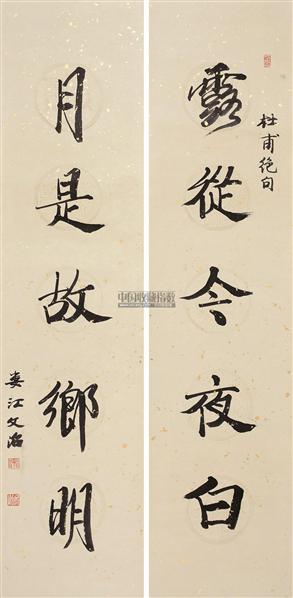 露從今夜白
杜甫絶句
月是故鄉明
婁江文治
中国收藏指数